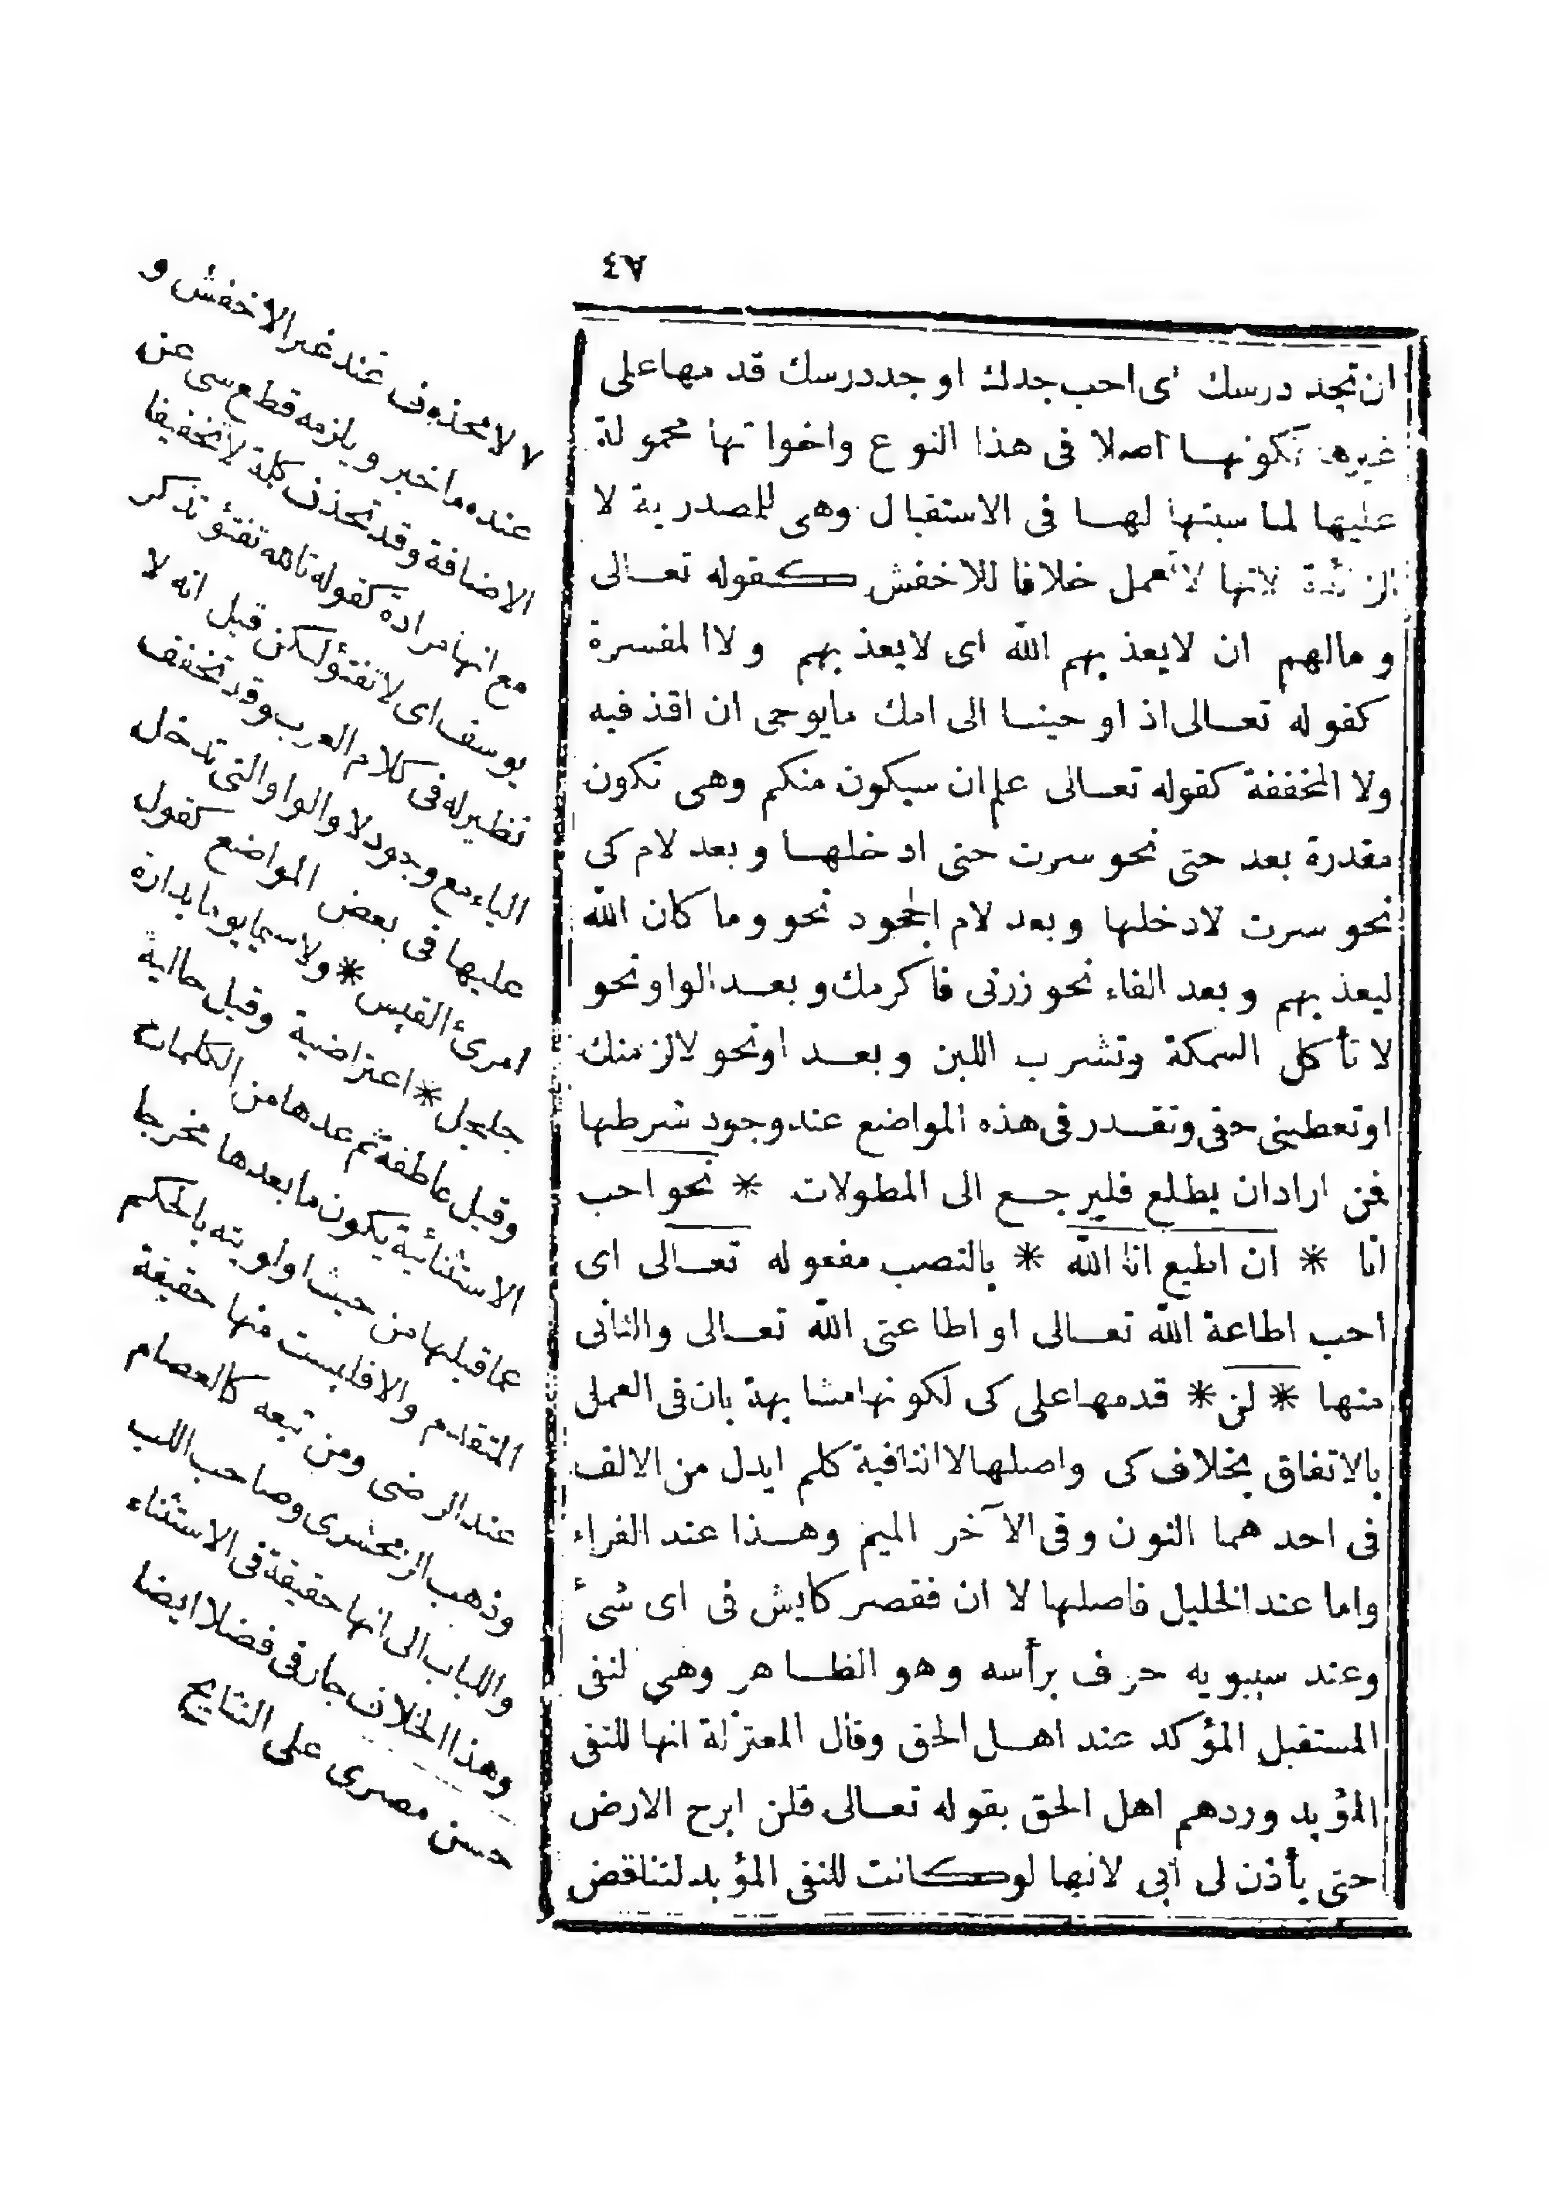 ٤٧
ان تجد درسك اى احب جدك او جد درسك قدمها على
غيرها لكونها اصلا فى هذا النوع واخواتها محمولة
عليها لمشابهتها لها فى الاستقبال وهى المصدرية لا
الزائدة لانها لا تعمل خلافا للاخفش كقوله تعالى
ومالهم ان لايعذبهم الله اى لايعذبهم ولا المفسرة
كقوله تعالى اذ اوحينا الى امك مايوحى ان اقذفيه
ولا المخففة كقوله تعالى علم ان سيكون منكم وهى تكون
مقدرة بعد حتى نحو سرت حتى ادخلها وبعد لام كى
نحو سرت لادخلها وبعد لام الجحود نحو وما كان الله
ليعذبهم وبعد الفاء نحو زرنى فاكرمك وبعد الواو نحو
لا تأكل السمكة وتشرب اللبن وبعد او نحو لالزمنك
اوتعطينى حقى وتقدر فى هذه المواضع عند وجود شرطها
فمن اراد ان يطلع فليرجع الى المطولات * نحو احب
انا * ان اطيع انا الله * بالنصب مفعوله تعالى اى
احب اطاعة الله تعالى او اطاعتى الله تعالى والثانى
منها * لن * قدمها على كى لكونها مشابهة بان فى العمل
بالاتفاق بخلاف كى واصلها لا النافية كلم ابدل من الالف
فى احدهما النون وفى الآخر الميم وهذا عند الفراء
واما عند الخليل فاصلها لا ان فقصر كايش فى اى شىء
وعند سيبويه حرف برأسه وهو الظاهر وهى لنفى
المستقبل المؤكد عند اهل الحق وقال المعتزلة انها للنفى
المؤبد وردهم اهل الحق بقوله تعالى فلن ابرح الارض
حتى يأذن لى ابى لانها لو كانت للنفى المؤبد لتناقض
٧ لا تحذف عند غير الاخفش و
عنده ما خبر ويلزمه قطع سى عن
الاضافة وقد تحذف كلمة لا تخفيفا
مع انها مرادة كقوله تالله تفتؤ تذكر
يوسف اى لا تفتؤ لكن قيل انه لا
نظير له فى كلام العرب وقد تخفف
الياء مع وجود لا والواو التى تدخل
عليها فى بعض المواضع كقول
امرئ القيس * ولا سيما يوما بدارة
جلجل * اعتراضية وقيل حالية
وقيل عاطفة ثم عدها من الكلمات
الاستثنائية يكون ما بعدها مخرجا
عما قبلها من حيث اولويته بالحكم
المتقدم والا فليست منها حقيقة
عند الرضى ومن تبعه كالعصام
وذهب الزمخشرى وصاحب اللب
واللباب الى انها حقيقة فى الاستثناء
وهذا الخلاف جار فى فضلا ايضا
حسن مصرى على النتايج